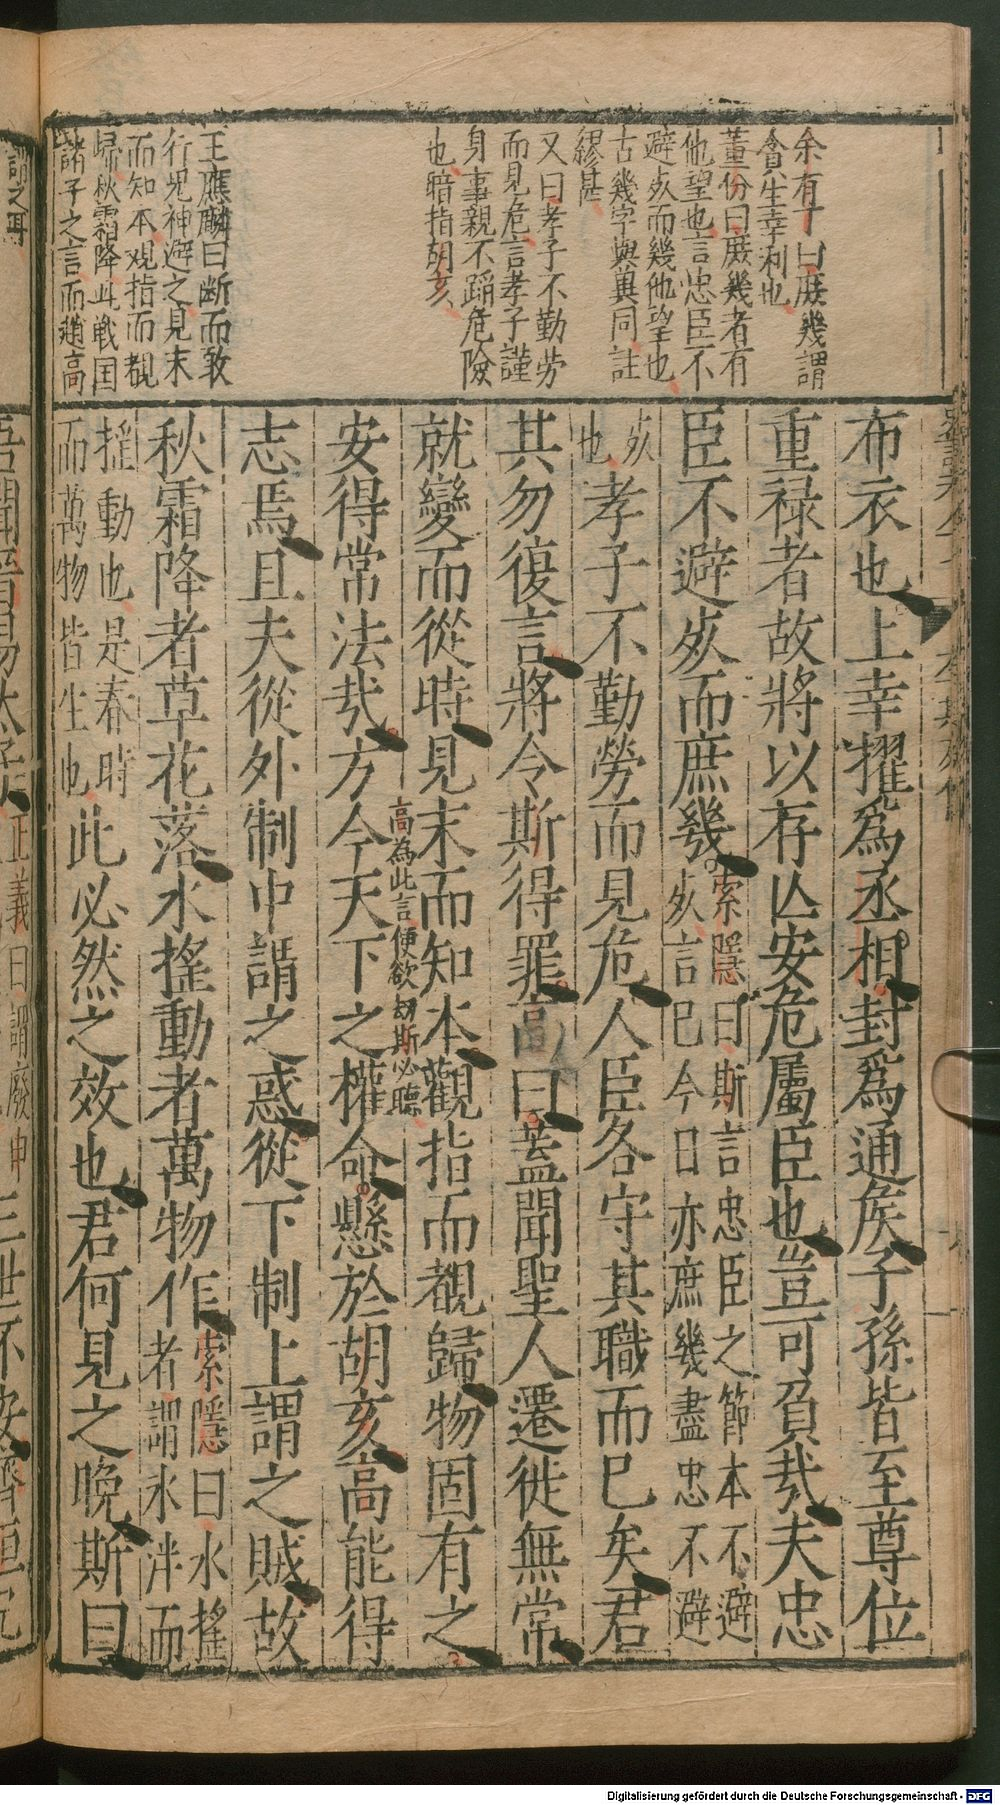 余有丁曰庶幾謂
貪生幸利也
董份曰庶幾者有
他望也言忠臣不
避死而幾他望也
古幾字與兾同註
繆甚
又曰孝子不勤勞
而見危言孝子謹
身事親不蹈危險
也暗指胡亥
王應麟曰断而敢
行鬼神避之見末
而知本观指而覩
歸秋霜降此戦囯
諸子之言而趙高
布衣也上幸擢爲丞相封爲通矦子孫皆至尊位
重禄者故將以存亾安危屬臣也豈可負㦲夫忠
臣不避歾而庶幾索隱曰斯言忠臣之節本不避
歾言巳今日亦庶幾盡忠不避
歾
也孝子不勤勞而見危人臣各守其職而巳矣君
其勿復言將令斯得罪高曰蓋聞聖人遷徙無常
就變而從時見末而知本觀指而覩歸物固有之
高為此言便欲刼斯必聽
安得常法㦲方今天下之權命懸於胡亥高能得
志焉且夫從外制中謂之惑從下制上謂之賊故
秋霜降者草花落水摇動者萬物作索隱曰水摇
者謂氷泮而
摇動也是春時
而萬物皆生也此必然之效也君何見之晚斯曰
Digitalisierung gefördert durch die Deutsche Forschungsgemeinschaft - DFG